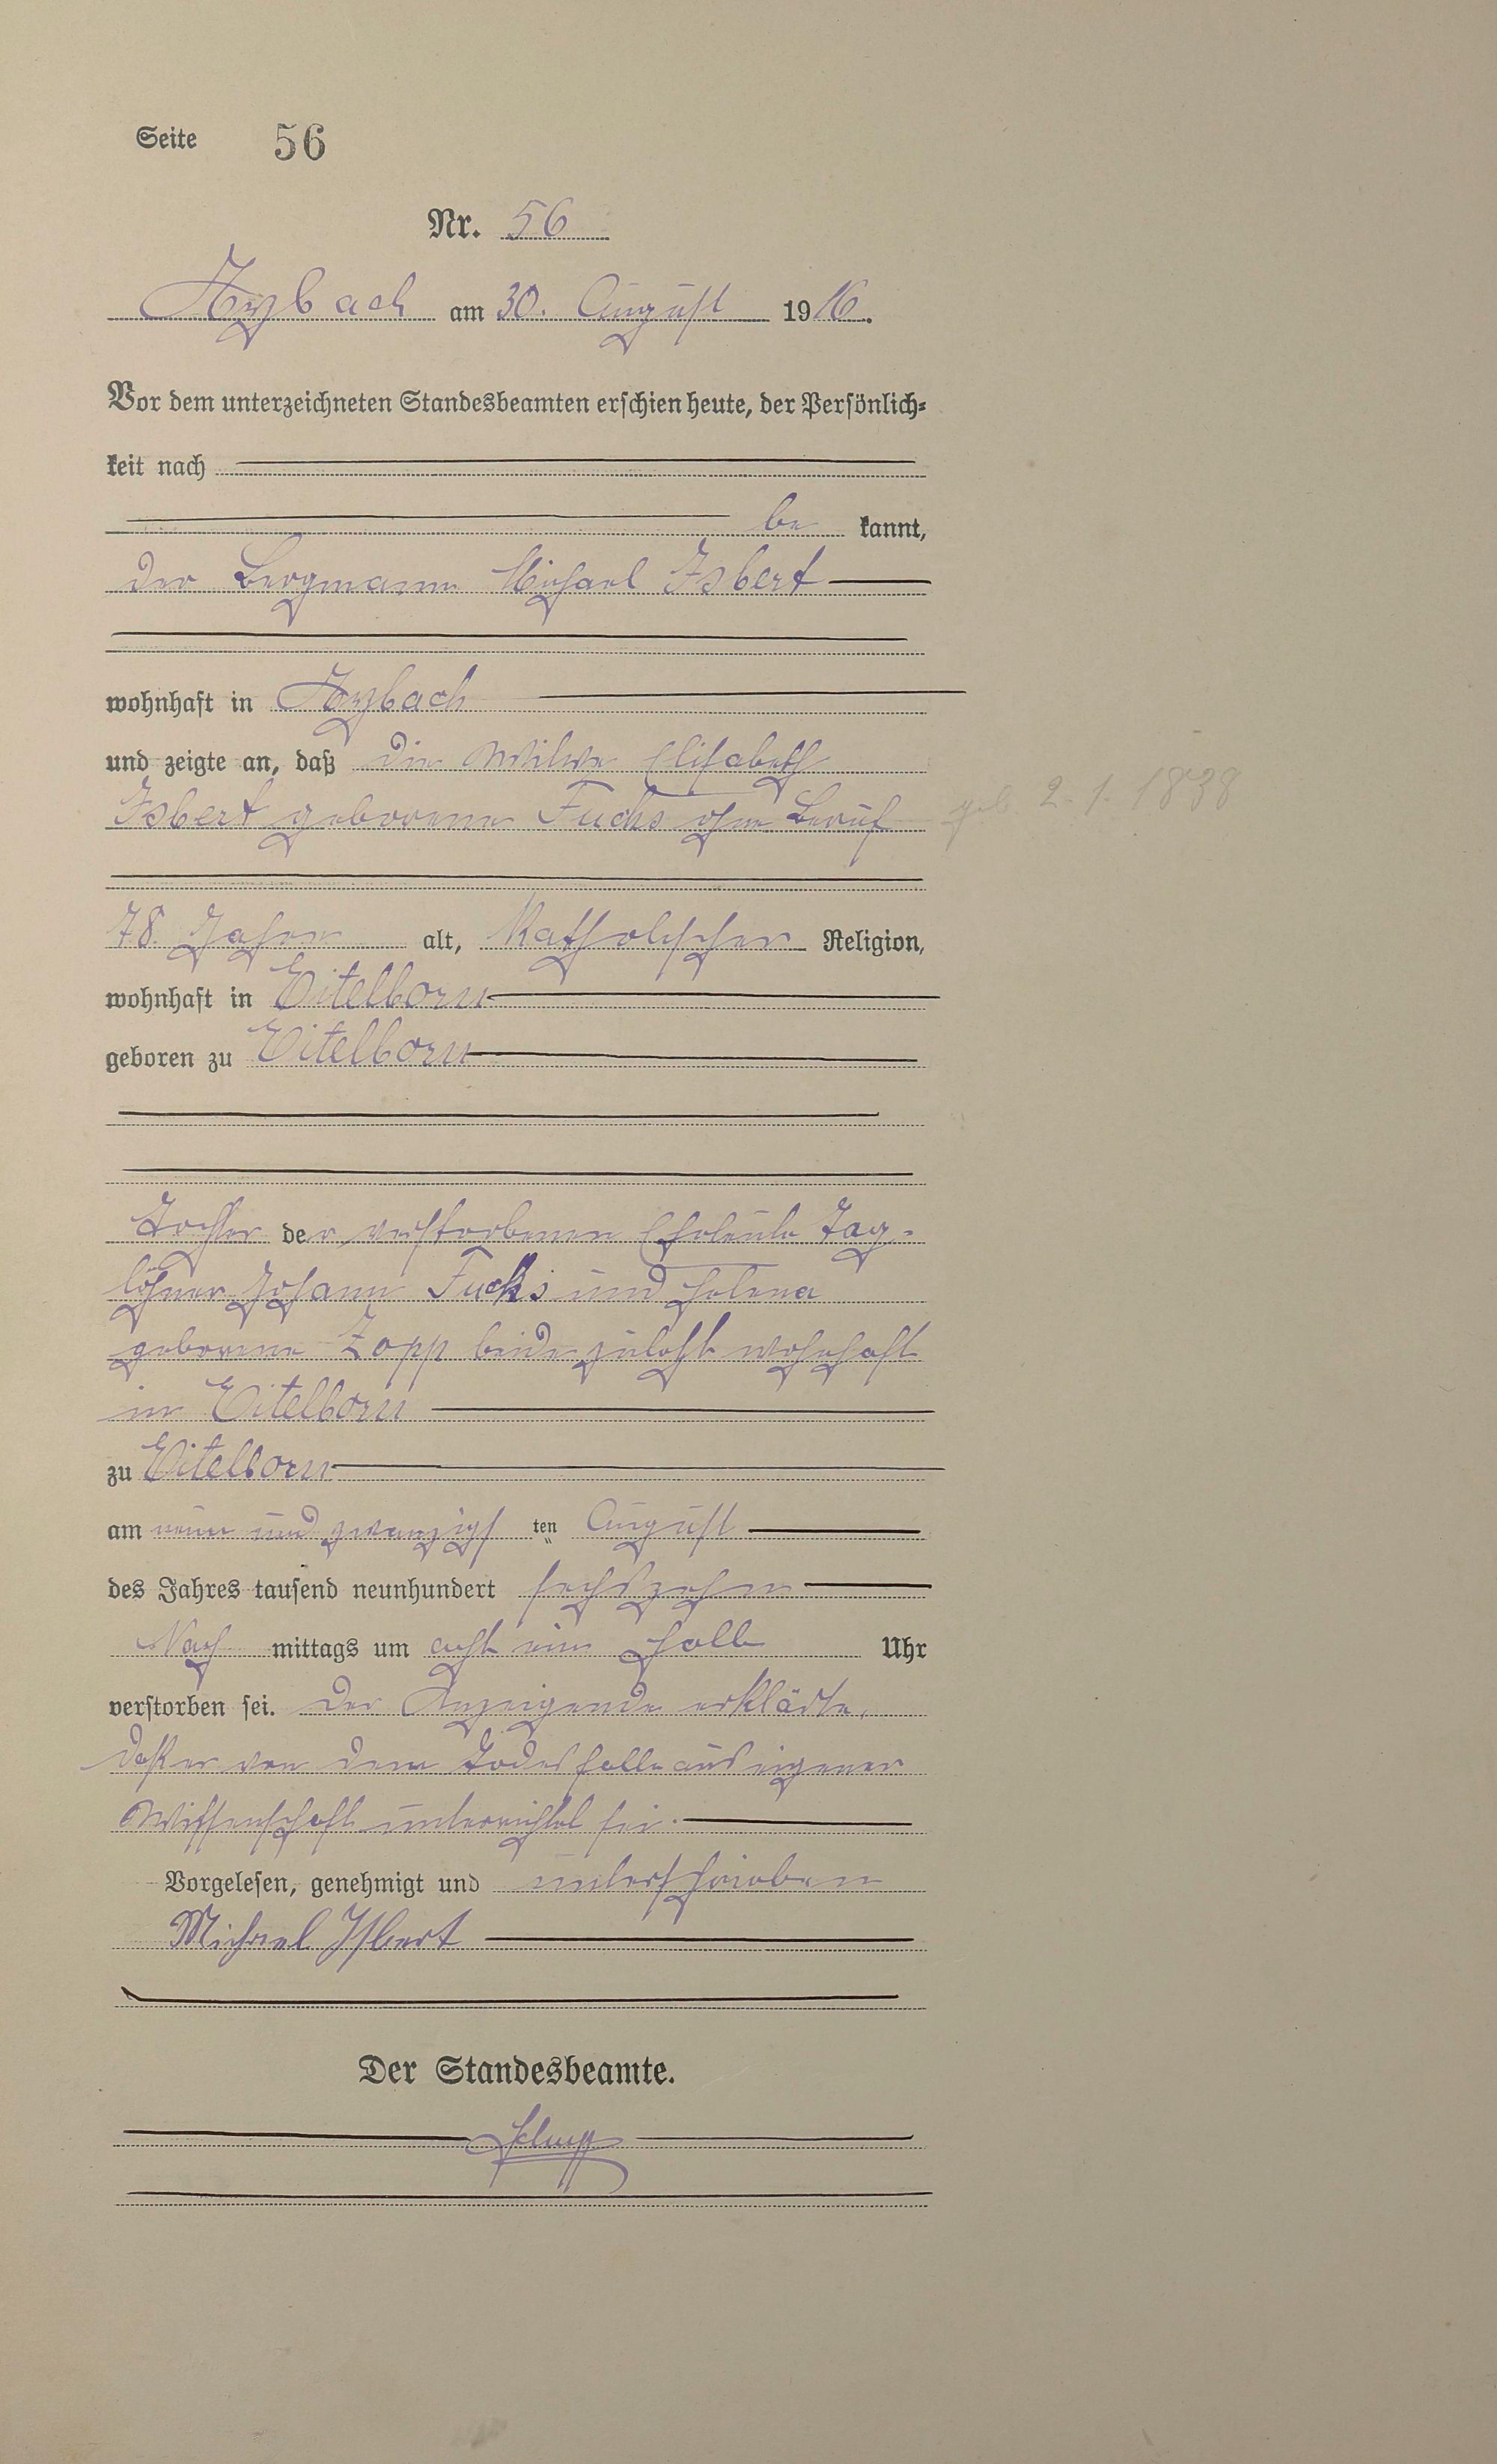 Seite 56
Nr. 56
Arzbach am 30. August 1916.
Vor dem unterzeichneten Standesbeamten erschien heute, der Persönlich-
keit nach
be kannt,
der Bergmann Michael Isbert
wohnhaft in Arzbach
und zeigte an, daß die Witwe Elisabeth
Isbert geborene Fuchs ohne Beruf
geb 2. 1. 1838
78 Jahre alt, Katholischer Religion,
wohnhaft in Eitelborn
geboren zu Eitelborn
Tochter der verstorbenen Eheleute Tag-
löhner Johann Fuchs und Helena
geborene Zopp beide zuletzt wohnhaft
in Eitelborn
zu Eitelborn
am neun und zwanzigs ten August
des Jahres tausend neunhundert sechszehn
Nach mittags um acht ein halb Uhr
verstorben sei. Der Anzeigende erklärte,
daß er von dem Todesfalle aus eigener
Wissenschaft unterrichtet sei.
Vorgelesen, genehmigt und unterschrieben
Michael Isbert
Der Standesbeamte.